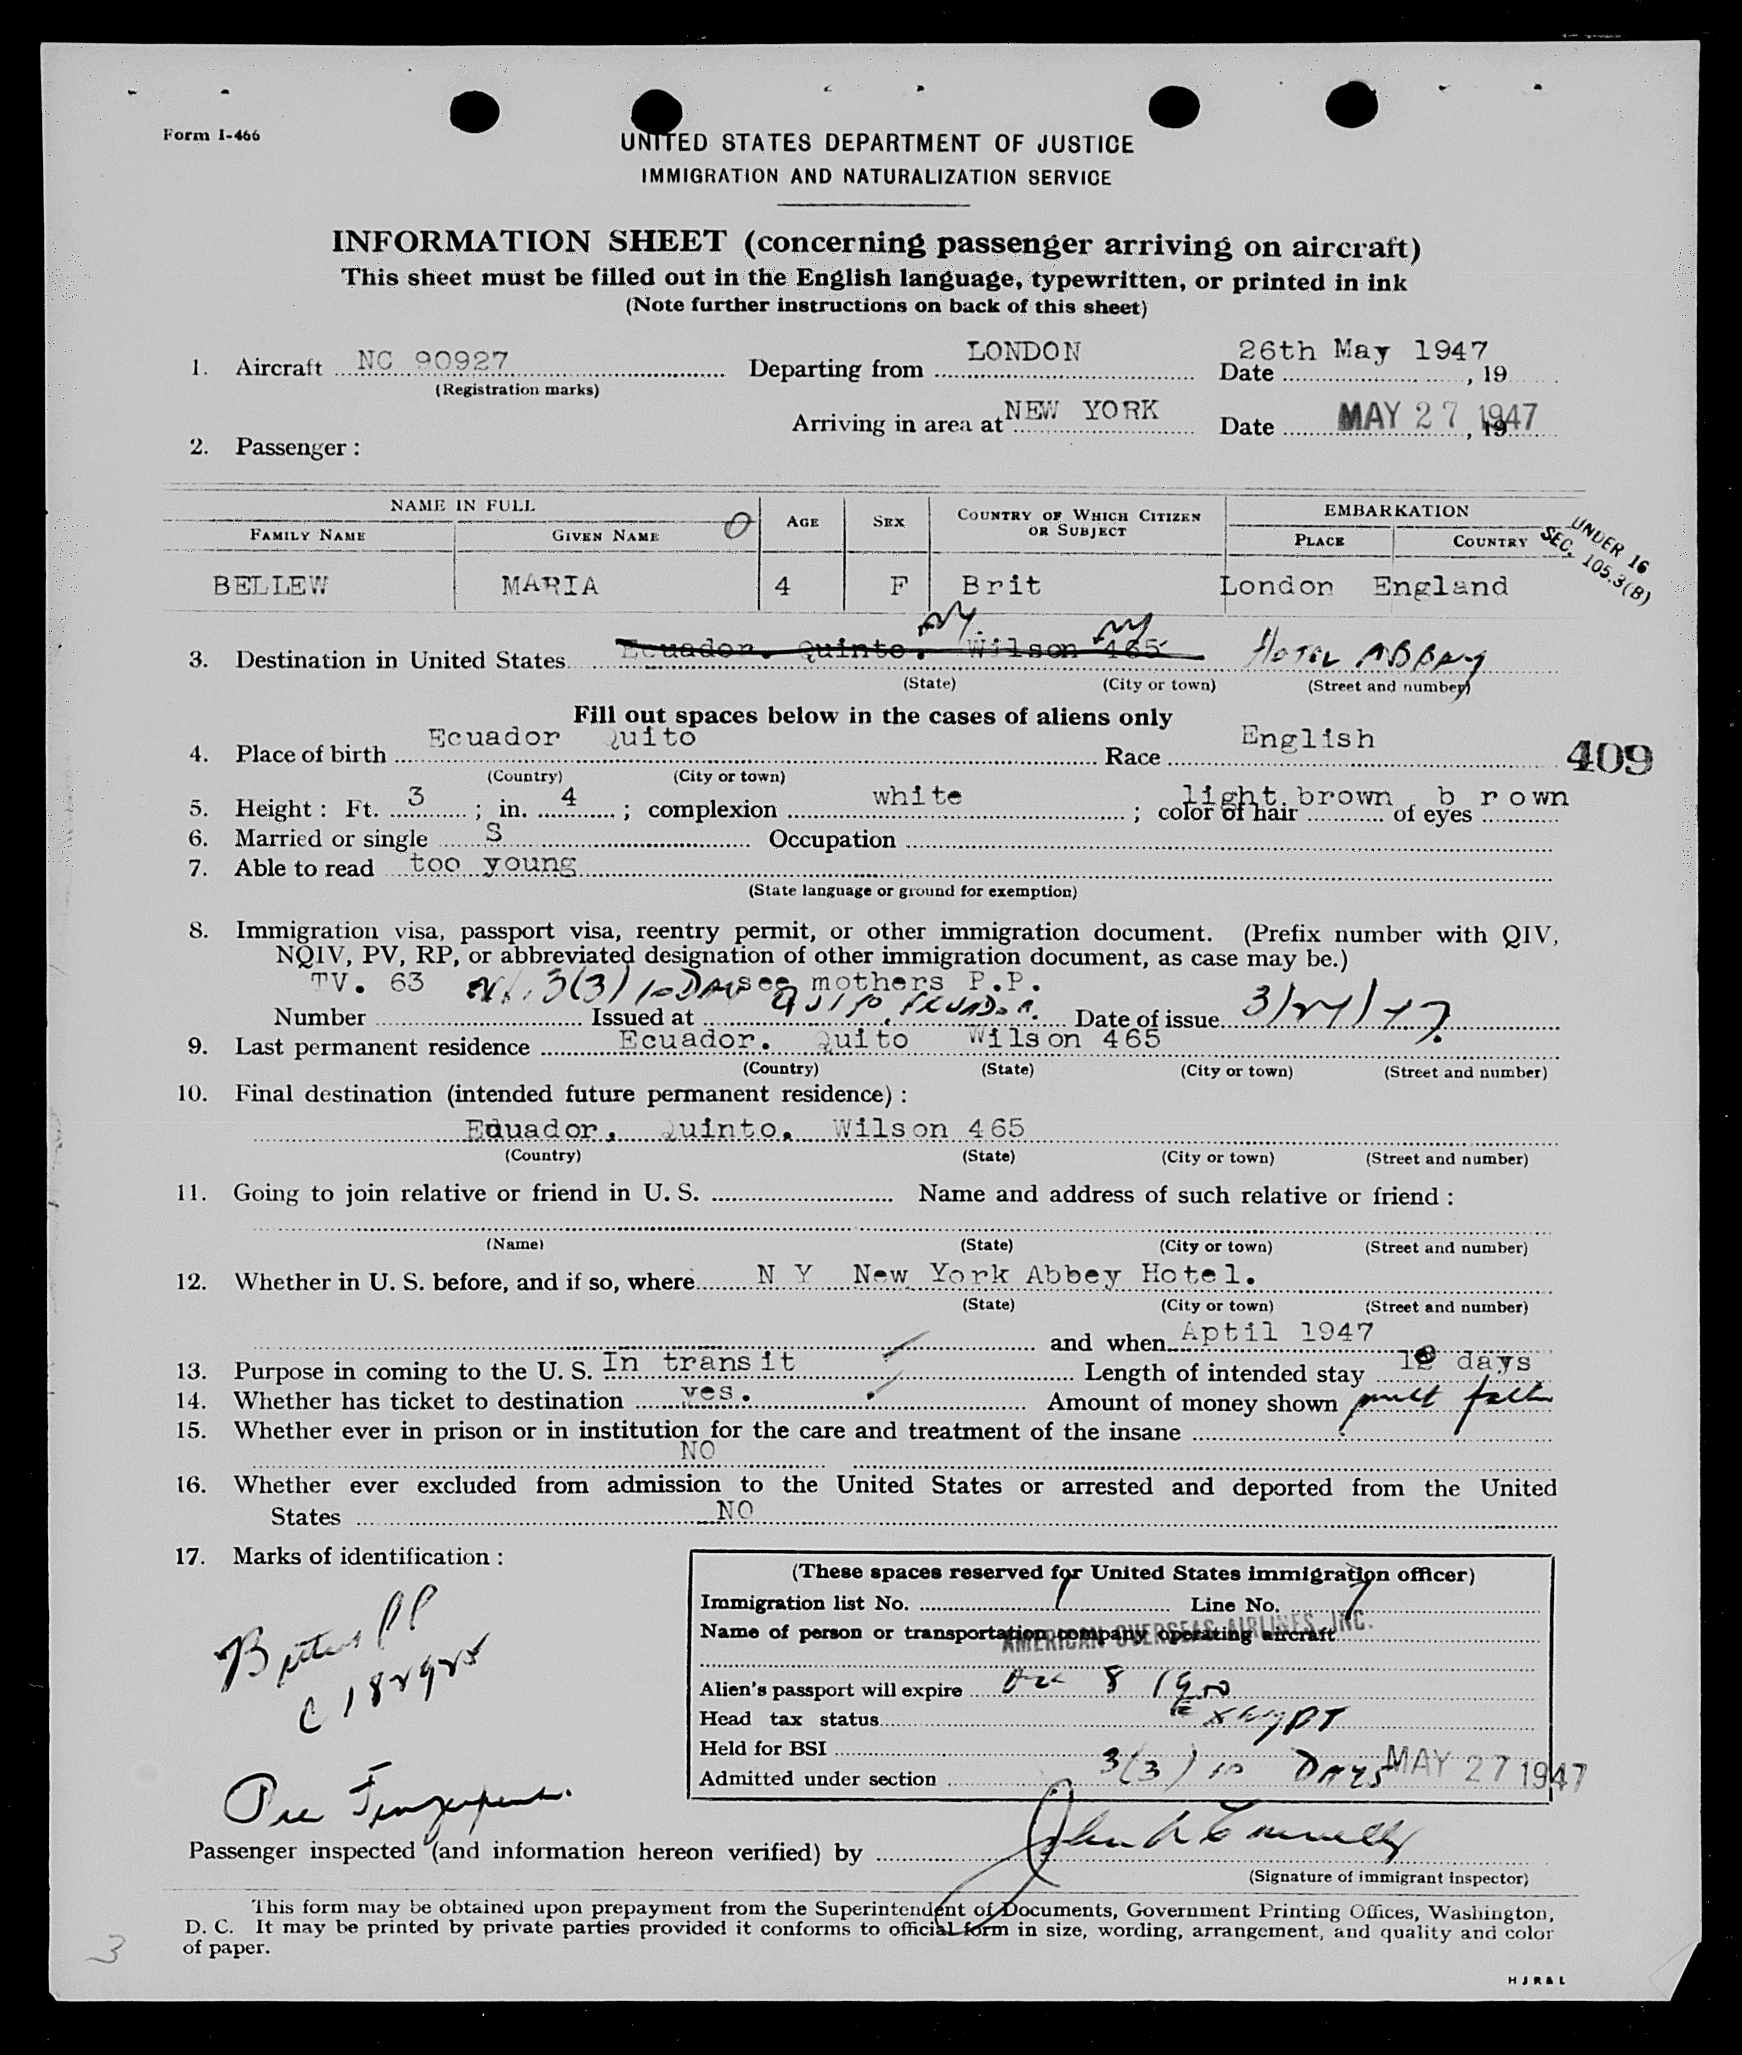 Form I-466
UNITED STATES DEPARTMENT OF JUSTICE
IMMIGRATION AND NATURALIZATION SERVICE
INFORMATION SHEET (concerning passenger arriving on aircraft)
This sheet must be filled out in the English language, typewritten, or printed in ink
(Note further instructions on back of this sheet)
1. Aircraft NC 90927 Departing from LONDON Date 26th May 1947, 19
(Registration marks)
Arriving in area at NEW YORK Date MAY 27 1947, 19
2. Passenger:
NAME IN FULL AGE SEX COUNTRY OF WHICH CITIZEN OR SUBJECT EMBARKATION
FAMILY NAME GIVEN NAME PLACE COUNTRY
UNDER 16
SEC. 105.3(B)
BELLEW MARIA 4 F Brit London England
NY NY
3. Destination in United States Ecuador. Quinto. Wilson 465 HOTEL ABBEY
(State) (City or town) (Street and number)
Fill out spaces below in the cases of aliens only
4. Place of birth Ecuador Quito Race English
409
(Country) (City or town)
5. Height: Ft. 3; in. 4; complexion white; color of hair light brown of eyes brown
6. Married or single S Occupation
7. Able to read too young
(State language or ground for exemption)
8. Immigration visa, passport visa, reentry permit, or other immigration document. (Prefix number with QIV,
NQIV, PV, RP, or abbreviated designation of other immigration document, as case may be.)
TV. 63 3(3) 10 DAYS see mothers P.P.
Number Issued at QUITO, ECUADOR. Date of issue 3/27/47
9. Last permanent residence Ecuador. Quito Wilson 465
(Country) (State) (City or town) (Street and number)
10. Final destination (intended future permanent residence):
Eduador, Quinto, Wilson 465
(Country) (State) (City or town) (Street and number)
11. Going to join relative or friend in U. S. Name and address of such relative or friend:
(Name) (State) (City or town) (Street and number)
12. Whether in U. S. before, and if so, where N Y New York Abbey Hotel.
(State) (City or town) (Street and number)
and when Aptil 1947
13. Purpose in coming to the U. S. In transit Length of intended stay 10 days
14. Whether has ticket to destination yes. Amount of money shown with father
15. Whether ever in prison or in institution for the care and treatment of the insane
NO
16. Whether ever excluded from admission to the United States or arrested and deported from the United
States NO
17. Marks of identification:
British PP
C 182928
(These spaces reserved for United States immigration officer)
Immigration list No. 1 Line No. 7
Name of person or transportation company operating aircraft AMERICAN OVERSEAS AIRLINES, INC.
Alien's passport will expire Dec 8 1950
Head tax status EXEMPT
Held for BSI
Admitted under section 3(3) 10 DAYS MAY 27 1947
Pre Fingerprint.
Passenger inspected (and information hereon verified) by
(Signature of immigrant inspector)
This form may be obtained upon prepayment from the Superintendent of Documents, Government Printing Offices, Washington,
D. C. It may be printed by private parties provided it conforms to official form in size, wording, arrangement, and quality and color
of paper.
3
H J R & L